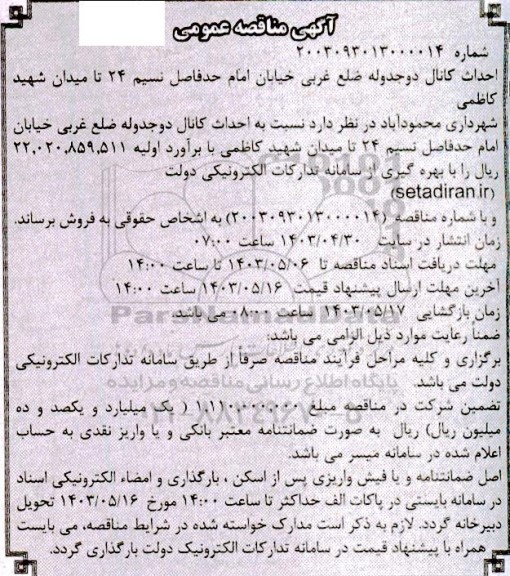 آگهی مناقصه عمومی
شماره ۲۰۰۳۰۹۳۰۱۳۰۰۰۰۱۴
احداث کانال دوجدوله ضلع غربی خیابان امام حدفاصل نسیم ۲۴ تا میدان شهید
کاظمی
شهرداری محمودآباد در نظر دارد نسبت به احداث کانال دوجدوله ضلع غربی خیابان
امام حدفاصل نسیم ۲۴ تا میدان شهید کاظمی با برآورد اولیه ۲۲,۰۲۰,۸۵۹,۵۱۱
ریال را با بهره گیری از سامانه تدارکات الکترونیکی دولت
(setadiran.ir)
و با شماره مناقصه (۲۰۰۳۰۹۳۰۱۳۰۰۰۰۱۴) به اشخاص حقوقی به فروش برساند.
زمان انتشار در سایت ۱۴۰۳/۰۴/۳۰ ساعت ۰۷:۰۰
مهلت دریافت اسناد مناقصه تا ۱۴۰۳/۰۵/۰۶ تا ساعت ۱۴:۰۰
آخرین مهلت ارسال پیشنهاد قیمت ۱۴۰۳/۰۵/۱۶ ساعت ۱۴:۰۰
زمان بازگشایی ۱۴۰۳/۰۵/۱۷ ساعت ۰۸:۰۰ می باشد.
ضمناً رعایت موارد ذیل الزامی می باشد:
برگزاری و کلیه مراحل فرآیند مناقصه صرفاً از طریق سامانه تدارکات الکترونیکی
دولت می باشد.
تضمین شرکت در مناقصه مبلغ ۱,۱۱۰,۰۰۰,۰۰۰ ( یک میلیارد و یکصد و ده
میلیون ریال) ریال به صورت ضمانتنامه معتبر بانکی و یا واریز نقدی به حساب
اعلام شده در سامانه میسر می باشد.
اصل ضمانتنامه و یا فیش واریزی پس از اسکن ، بارگذاری و امضاء الکترونیکی اسناد
در سامانه بایستی در پاکات الف حداکثر تا ساعت ۱۴:۰۰ مورخ ۱۴۰۳/۰۵/۱۶ تحویل
دبیرخانه گردد. لازم به ذکر است مدارک خواسته شده در شرایط مناقصه، می بایست
همراه با پیشنهاد قیمت در سامانه تدارکات الکترونیک دولت بارگذاری گردد.